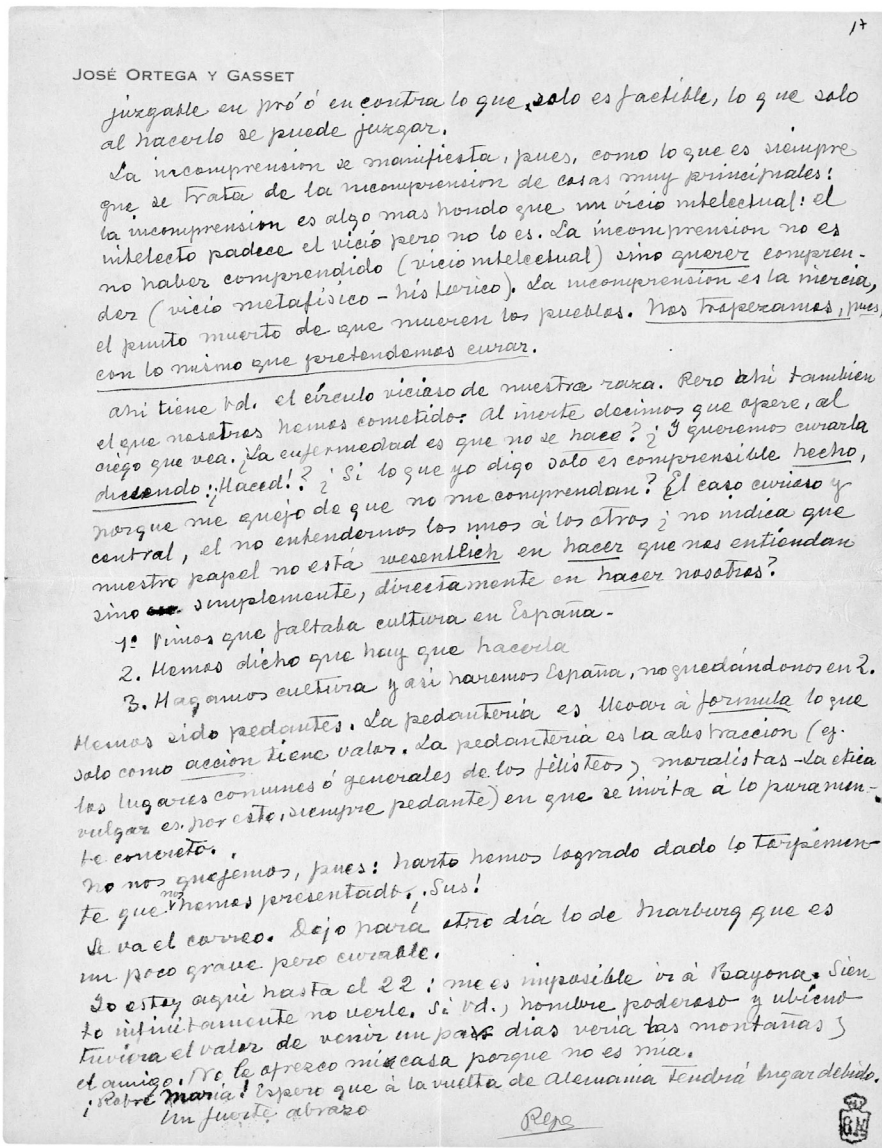 17
JOSÉ ORTEGA Y GASSET
juzgable en pró ó en contra lo que solo es factible, lo que solo
al hacerlo se puede juzgar.
La incomprension se manifiesta, pues, como lo que es siempre
que se trata de la incomprension de cosas muy principales:
la incomprension es algo mas hondo que un vicio intelectual: el
intelecto padece el vicio pero no lo es. La incomprension no es
no haber comprendido (vicio intelectual) sino querer compren-
der (vicio metafísico - histórico). La incomprension es la inercia,
el punto muerto de que mueren los pueblos. Nos tropezamos, pues,
con lo mismo que pretendemos curar.
Ahí tiene Vd. el círculo vicioso de nuestra raza. Pero ahí tambien
el que nosotros hemos cometido: Al inerte decimos que opere, al
ciego que vea. ¿La enfermedad es que no se hace? ¿Y queremos curarla
diciendo: ¡Haced!? ¿Si lo que yo digo solo es comprensible hecho,
porque me quejo de que no me comprendan? El caso curioso y
central, el no entendernos los unos á los otros ¿no indica que
nuestro papel no está wesentlich en hacer que nos entiendan
sino simplemente, directamente en hacer nosotros?
1º Vimos que faltaba cultura en España.
2. Hemos dicho que hay que hacerla
3. Hagamos cultura y asi haremos España, no quedándonos en 2.
Hemos sido pedantes. La pedantería es llevar á formula lo que
solo como acción tiene valor. La pedantería es la abstraccion (ej.
los lugares comunes ó generales de los filisteos y moralistas - La etica
vulgar es, por esto, siempre pedante) en que se invita á lo puramen-
te concreto.
No nos quejémos, pues: harto hemos logrado dado lo torpemen-
te que nos hemos presentado. ¡Sus!
Se va el correo. Dejo para otro día lo de Marburg que es
un poco grave pero curable.
Yo estoy aquí hasta el 22: me es imposible ir á Bayona. Sien
to infinitamente no verle. Si Vd., hombre poderoso y ubicuo
tuviera el valor de venir un par días vería las montañas y
el amigo. No le ofrezco mi casa porque no es mía.
¡Pobre María! Espero que á la vuelta de Alemania tendrá lugar debido.
Un fuerte abrazo
Pepe
BN